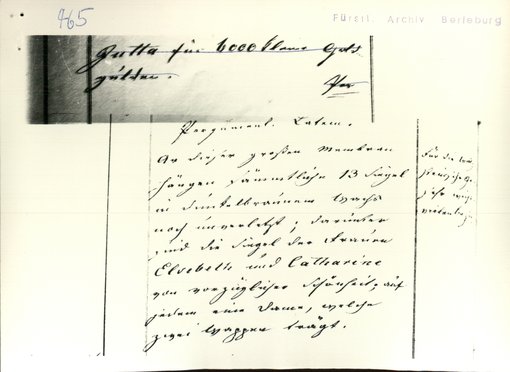 465
Fürstl. Archiv Berleburg
Jutta für 6000 kleine Gold
gülden.
Pergament. Latein.
An dieser großen Membran
hängen sämmtliche 13 Siegel
in dunkelbraunem Wachs
noch unverletzt; darunter
sind die Siegel der Frauen
Elsebeth und Catharine
von vorzüglicher Schönheit, auf
jedem eine Dame, welche
zwei Wappen trägt.
Für die